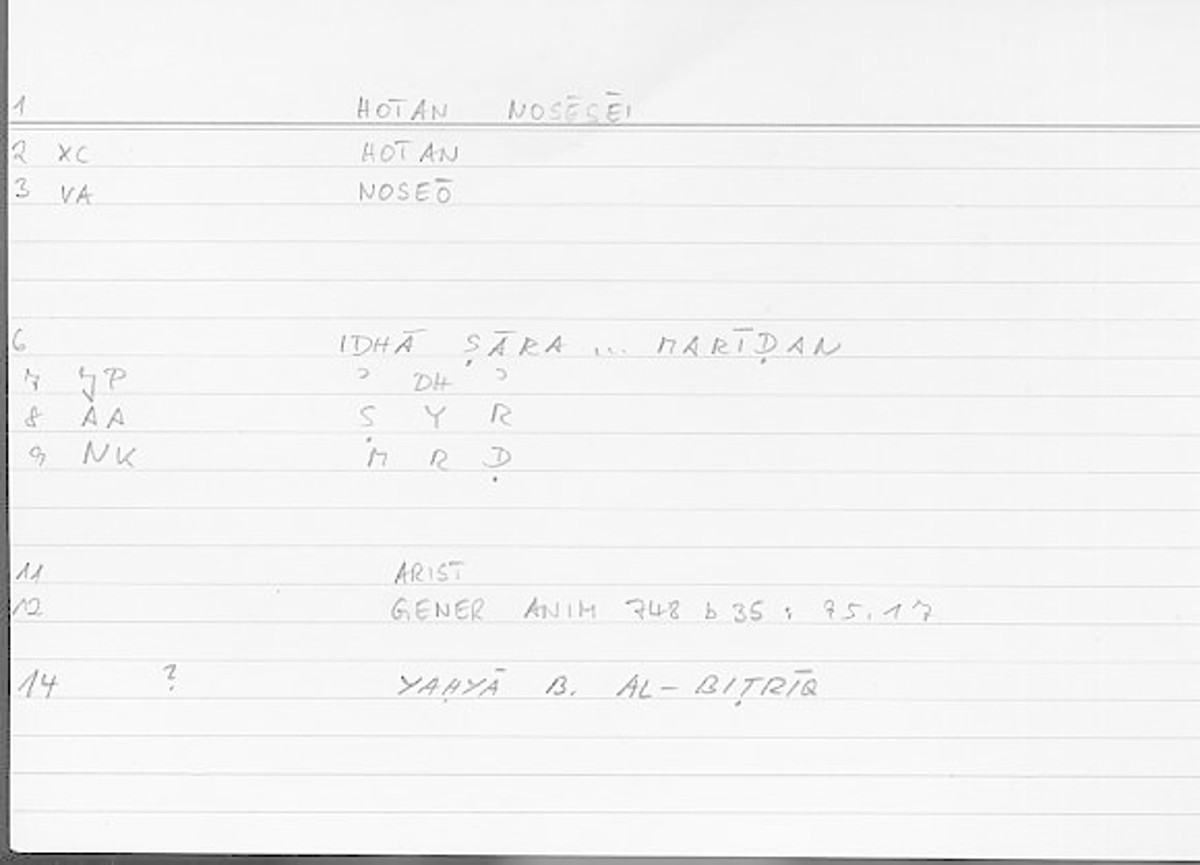 1 HOTAN NOSĒSĒI
2 XC HOTAN
3 VA NOSEŌ
6 IDHĀ ṢĀRA ... MARĪḌAN
7 JP ʾ DH ʾ
8 AA Ṣ Y R
9 NK M R Ḍ
11 ARIST
12 GENER ANIM 748 b 35 : 95.17
14 ? YAḤYĀ B. AL-BIṬRĪQ